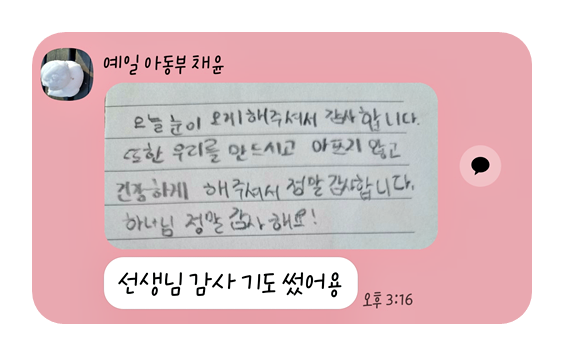 예일 아동부 채윤
오늘 눈이 오게 해주셔서 감사합니다.
또한 우리를 만드시고 아프지 않고
건강하게 해주셔서 정말 감사합니다.
하나님 정말 감사해요!
선생님 감사 기도 썼어용
오후 3:16